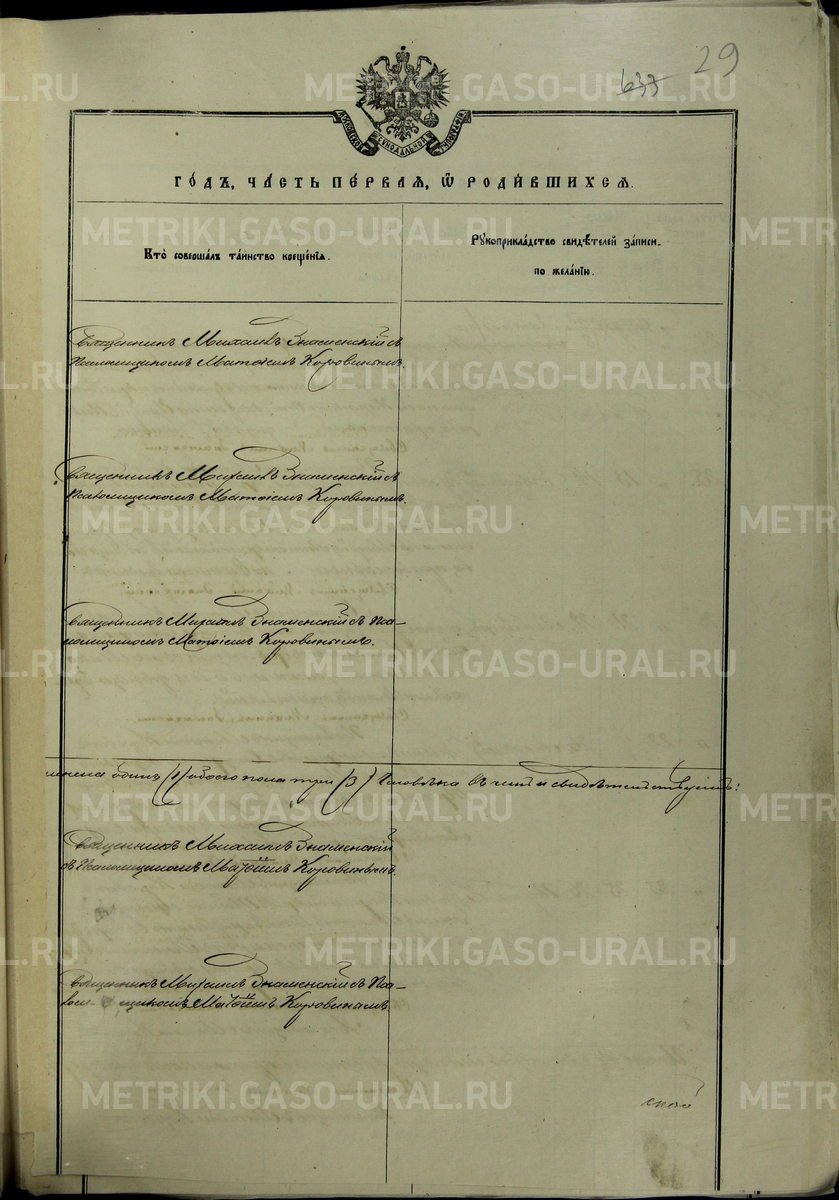 29
637
МОСКОВСКОЙ СѴНОДАЛЬНОЙ ТИПОГРАФІИ
ГО́ДЪ, ЧА́СТЬ ПЕ́РВАЯ, Ѽ РОДИ́ВШИХСЯ.
Кто̀ соверша́лъ та́инство креще́нїя.
Рꙋкоприкла́дство свидѣ́телей за́писи
по жела́нїю.
Священникъ Михаилъ Знаменскій съ
Псаломщикомъ Матѳіемъ Коровинымъ.
Священникъ Михаилъ Знаменскій съ
Псаломщикомъ Матѳіемъ Коровинымъ.
Священникъ Михаилъ Знаменскій съ Пса-
ломщикомъ Матѳіемъ Коровинымъ.
одинъ (1) обоего пола три (3) человѣка въ чемъ и свидѣтельствуемъ:
Священникъ Михаилъ Знаменскій
съ Псаломщикомъ Матѳіемъ Коровинымъ.
Священникъ Михаилъ Знаменскій съ Пса-
ломщикомъ Матѳіемъ Коровинымъ.
METRIKI.GASO-URAL.RU